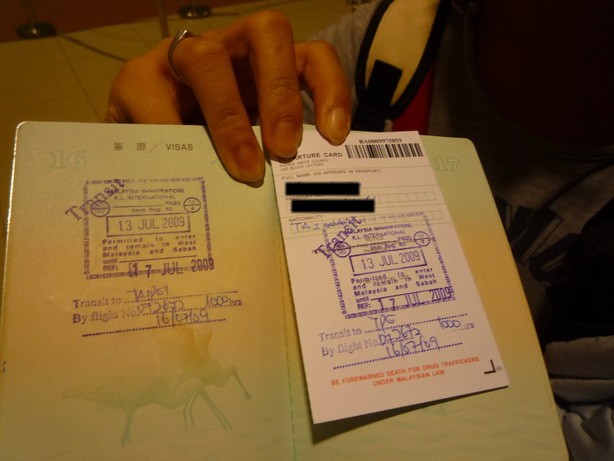 16
簽 證 / VISAS
Transit
MALAYSIA IMMIGRATION
K.L. INTERNATIONAL
Imm Reg. 43 PASS
13 JUL 2009
Permitted to enter
and remain in West
Malaysia and Sabah
until
REF: 17 JUL 2009
Transit to
By flight No. D72672 1000 hrs
16/07/09
BA0009975859
DEPARTURE CARD
FULL NAME (AS APPEARS IN PASSPORT)
NATIONALITY
Transit
MALAYSIA IMMIGRATION
K.L. INTERNATIONAL
PASS
13 JUL 2009
Permitted to enter
and remain in West
Malaysia and Sabah
until
REF: 17 JUL 2009
Transit to
By flight No. D72672 1000 hrs
16/07/09
BE FOREWARNED DEATH FOR DRUG TRAFFICKERS
UNDER MALAYSIAN LAW
17